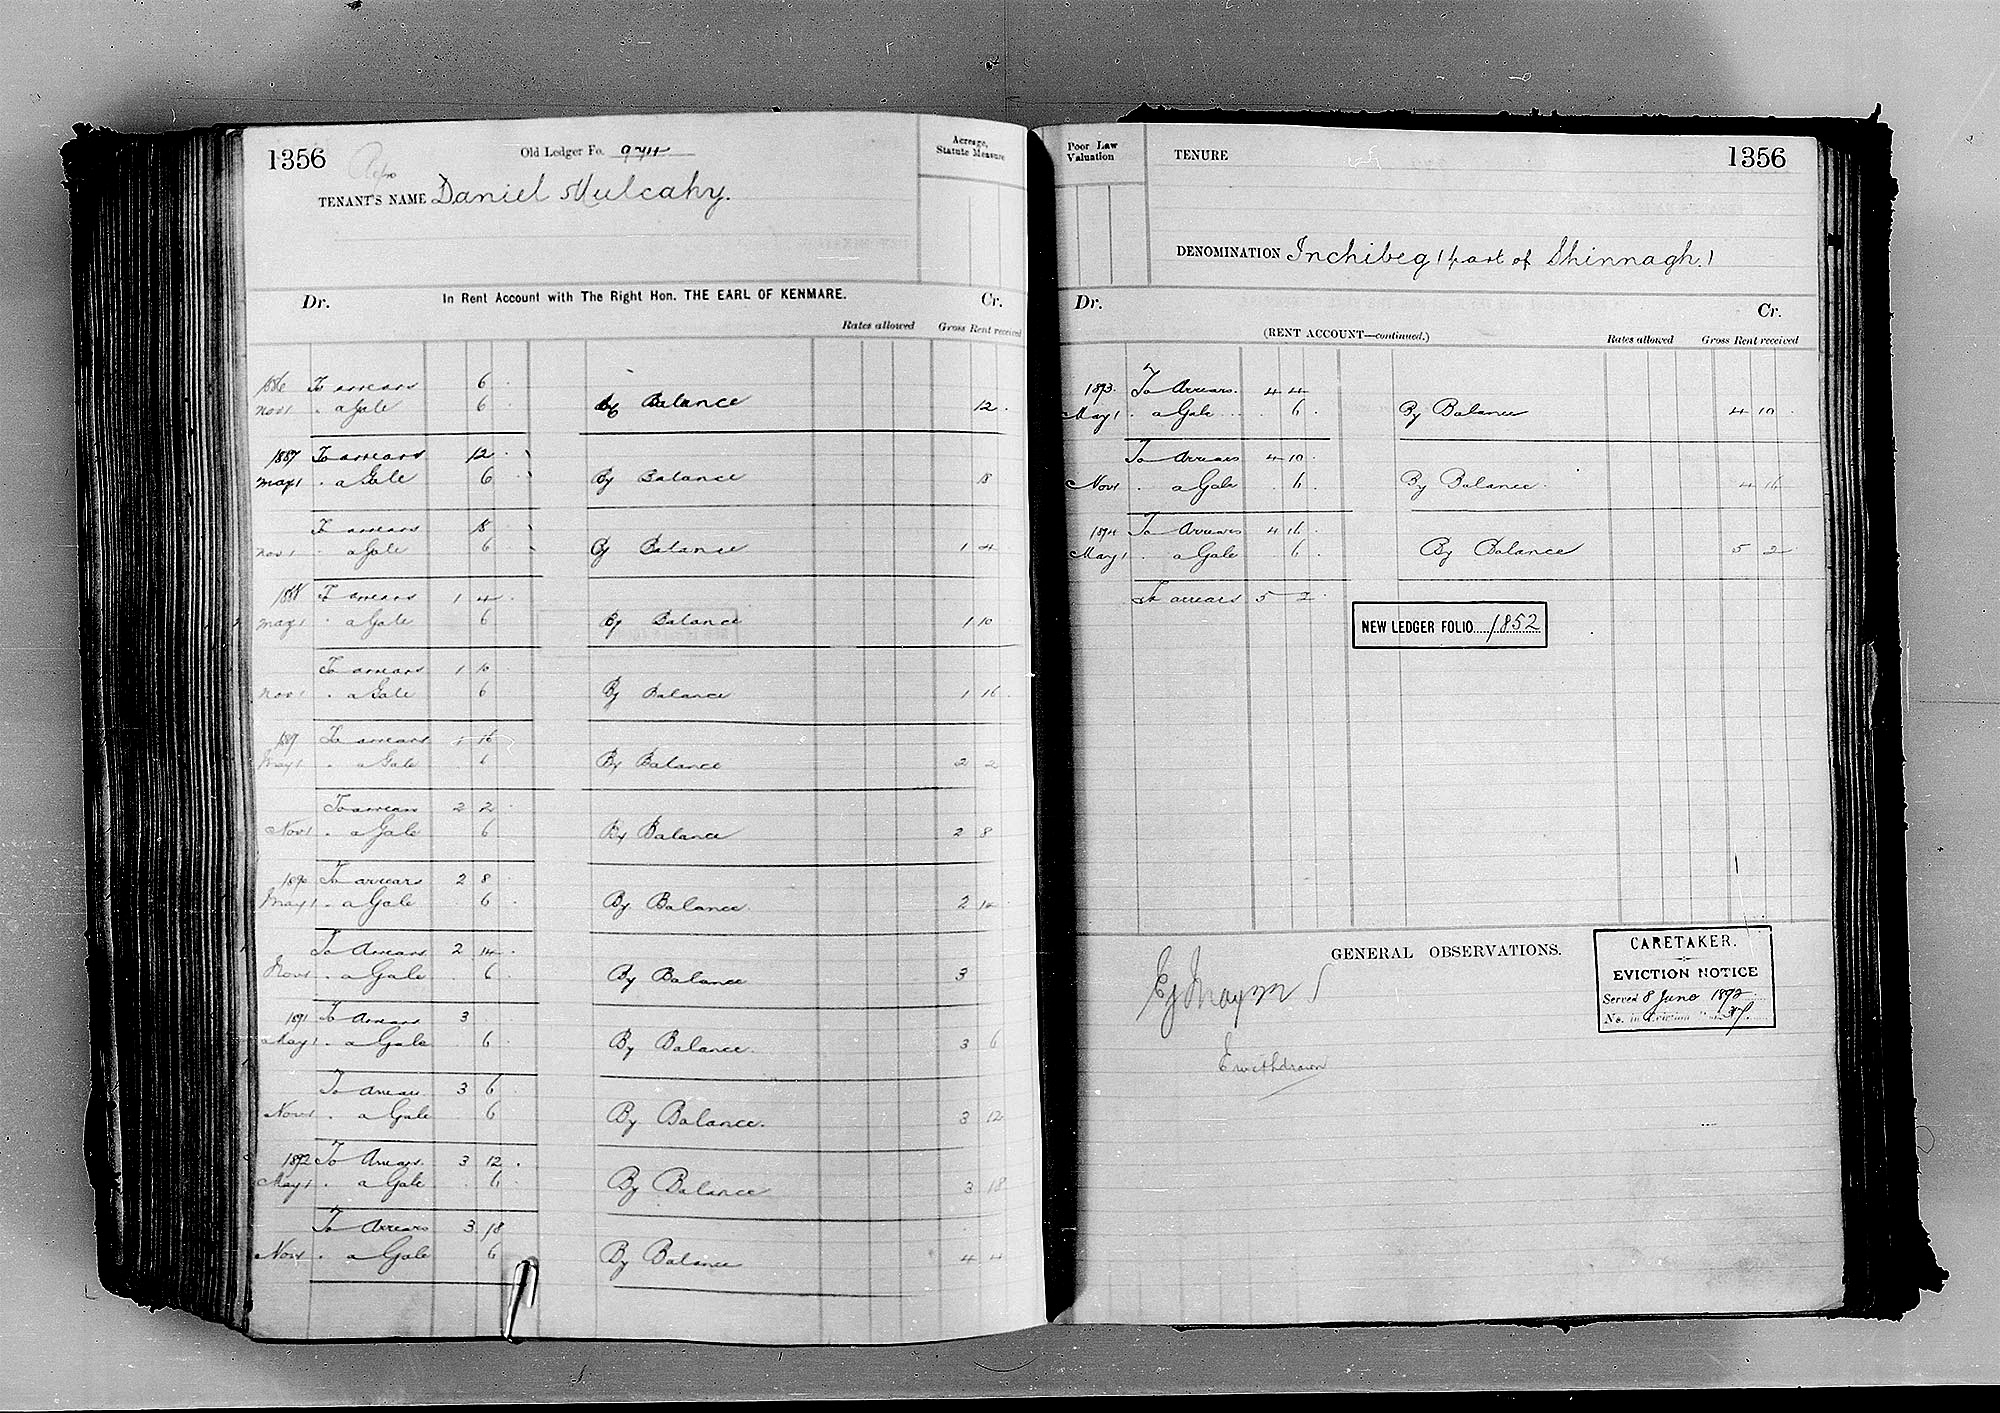 1356
Old Ledger Fo. 974
Acreage,
Statute Measure
TENANT'S NAME Daniel Mulcahy.
Dr. In Rent Account with The Right Hon. THE EARL OF KENMARE. Cr.
Rates allowed Gross Rent received
1886 To arrears 6
Nov 1 . a Gale 6 By Balance 12 .
1887 To arrears 12 .
May 1 . a Gale 6 . By Balance 18
To arrears 18 .
Nov 1 . a Gale 6 By Balance 1 4
1888 To arrears 1 4 .
May 1 . a Gale 6 By Balance 1 10
To arrears 1 10
Nov 1 . a Gale 6 By Balance 1 16 .
1889 To arrears 1 16
May 1 . a Gale 6 By Balance 2 2
To arrears 2 2 .
Nov 1 . a Gale 6 By Balance 2 8
1890 To arrears 2 8
May 1 . a Gale 6 . By Balance 2 14
To Arrears 2 14 .
Nov 1 . a Gale 6 By Balance 3
1891 To Arrears 3
May 1 . a Gale 6 . By Balance. 3 6
To Arrears 3 6 .
Nov 1 . a Gale 6 By Balance. 3 12
1892 To Arrears. 3 12 .
May 1 . a Gale 6 . By Balance 3 18
To Arrears 3 18
Nov 1 . a Gale 6 By Balance 4 4
Poor Law
Valuation
TENURE
1356
DENOMINATION Inchibeg (part of Shinnagh.)
Dr. Cr.
(RENT ACCOUNT—continued.) Rates allowed Gross Rent received
1893. To Arrears. 4 4
May 1 . a Gale 6 . By Balance 4 10
To Arrears 4 10 .
Nov 1 . a Gale 6 . By Balance. 4 16
1894 To Arrears 4 16 .
May 1 . a Gale 6 . By Balance 5 2
To arrears 5 2 .
NEW LEDGER FOLIO 1852
GENERAL OBSERVATIONS.
CARETAKER.
EVICTION NOTICE
Served 8 June 1892
No. in Eviction
E withdrawn